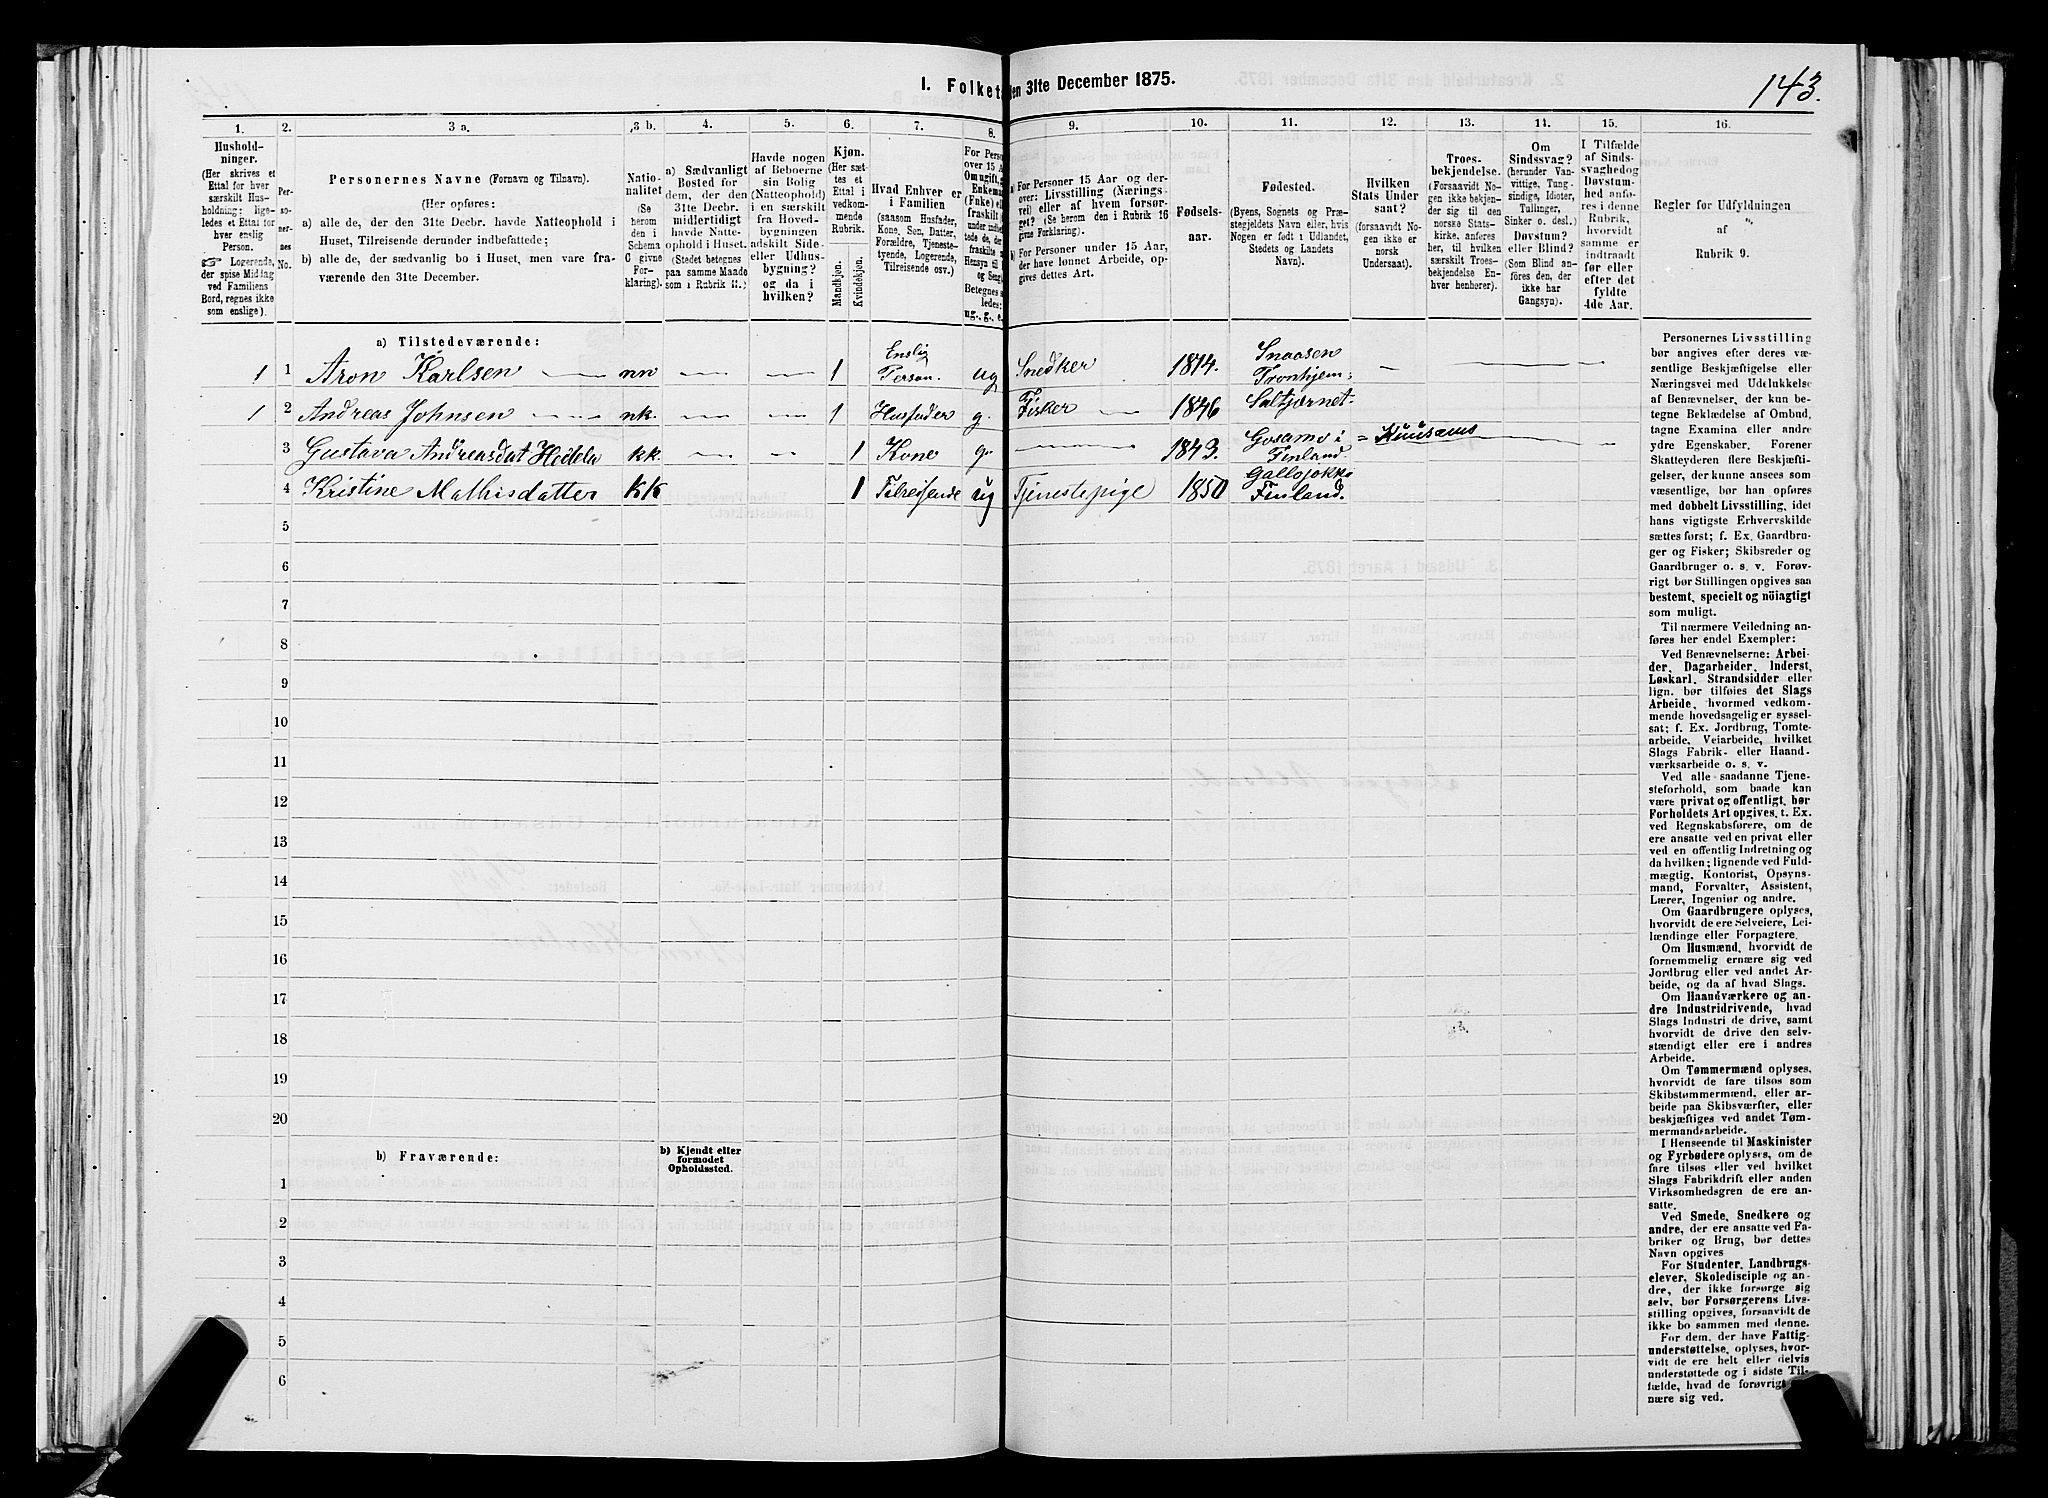 1. Folket
den 31te December 1875.
143.
1.
Hushold-
ninger.
(Her skrives et
Ettal for hver
særskilt Hus-
holdning; lige-
ledes et Ettal for
hver enslig
Person.
☞ Logerende,
der spise Middag
ved Familiens
Bord, regnes ikke
som enslige).
2.
Per-
so-
ner-
nes
No.
3 a.
Personernes Navne (Fornavn og Tilnavn).
(Her opføres:
a) alle de, der den 31te Decbr. havde Natteophold i
Huset, Tilreisende derunder indbefattede;
b) alle de, der sædvanlig bo i Huset, men vare fra-
værende den 31te December.
3 b.
Natio-
nalitet
(Se
herom
den i
Schema
C givne
For-
klaring).
4.
a) Sædvanligt
Bosted for
dem, der den
31te Decbr.
midlertidigt
havde Natte-
ophold i Huset.
(Stedet betegnes
paa samme Maade
som i Rubrik 11.)
5.
Havde nogen
af Beboerne
sin Bolig
(Natteophold)
i en særskilt
fra Hoved-
bygningen
adskilt Side-
eller Udhus-
bygning?
og da i
hvilken?
6.
Kjøn.
(Her sæt-
tes et
Ettal i
vedkom-
mende
Rubrik.
Mandkjøn.
Kvindekjøn.
7.
Hvad Enhver er
i Familien
(saasom Husfader,
Kone, Søn, Datter,
Forældre, Tjeneste-
tyende, Logerende,
Tilreisende osv.)
8.
For Perso
over 15 A
Om ugift, g
Enkema
(Fnke) ell
fraskilt
under indb
tede de, d
fraskilte
Hensyn til
og Seng
Betegnes s
ledes:
ug., g., e.
9.
a) For Personer 15 Aar og der-
over: Livsstilling (Nærings-
vei) eller af hvem forsør-
get? (Se herom den i Rubrik 16
givne Forklaring).
b) For Personer under 15 Aar,
der have lønnet Arbeide, op-
gives dettes Art.
10.
Fødsels-
aar.
11.
Fødested.
(Byens, Sognets og Præ-
stegjeldets Navn eller, hvis
Nogen er født i Udlandet,
Stedets og Landets
Navn).
12.
Hvilken
Stats Under
saat?
(forsaavidt No-
gen ikke er
norsk
Undersaat).
13.
Troes-
bekjendelse.
(Forsaavidt No-
gen ikke bekjen-
der sig til den
norske Stats-
kirke, anføres
her, til hvilken
særskilt Troes-
bekjendelse En-
hver henhører).
14.
Om
Sindssvag?
(herunder Van-
vittige, Tung-
sindige, Idioter,
Tullinger,
Sinker o. desl.)
Døvstum?
eller Blind?
(Som Blind an-
føres den, der
ikke har
Gangsyn).
15.
I Tilfælde
af Sinds-
svaghed og
Døvstum-
hed anfø-
res i denne
Rubrik,
hvorvidt
samme er
indtraadt
før eller
efter det
fyldte
4de Aar.
16.
Regler for Udfyldningen
af
Rubrik 9.
a) Tilstedeværende:
1 1 Aron Karlsen nn 1 Enslig Person. ug Snedker 1814. Snaasen Tronhjem
1 2 Andreas Johnsen nk. 1 Husfader g. Fisker 1846 Saltjærnet
3 Gustava Andreasdat Heikela kk. 1 Kone g. 1843. Gosamo i Finland. Kuusamo
4 Kristine Mathisdatter KK 1 Tilreisende ug Tjenestepige 1850 Gallsjokko Finland.
5
6
7
8
9
10
11
12
13
14
15
16
17
18
19
20
b) Fraværende:
b) Kjendt eller
formodet
Opholdssted.
1
2
3
4
5
6
Personernes Livsstilling
bør angives efter deres væ-
sentlige Beskjæftigelse eller
Næringsvei med Udelukkelse
af Benævnelser, der kun be-
tegne Beklædelse af Ombud,
tagne Examina eller andre
ydre Egenskaber. Forener
Skatteyderen flere Beskjæfti-
gelser, der kunne ansees som
væsentlige, bør han opføres
med dobbelt Livsstilling, idet
hans vigtigste Erhvervskilde
sættes først; f. Ex. Gaardbru-
ger og Fisker; Skibsreder og
Gaardbruger o. s. v. Forøv-
rigt bør Stillingen opgives saa
bestemt, specielt og nöiagtigt
som muligt.
Til nærmere Veiledning an-
føres her endel Exempler:
Ved Benævnelserne: Arbei-
der, Dagarbeider, Inderst,
Løskarl, Strandsidder eller
lign. bør tilføies det Slags
Arbeide, hvormed vedkom-
mende hovedsagelig er syssel-
sat; f. Ex. Jordbrug, Tomte-
arbeide, Veiarbeide, hvilket
Slags Fabrik- eller Haand-
værksarbeide o. s. v.
Ved alle saadanne Tjene-
steforhold, som baade kan
være privat og offentligt, bør
Forholdets Art opgives, t. Ex.
ved Regnskabsførere, om de
ere ansatte ved en privat eller
ved en offentlig Indretning og
da hvilken; lignende ved Fuld-
mægtig, Kontorist, Opsyns-
mand, Forvalter, Assistent,
Lærer, Ingeniør og andre.
Om Gaardbrugere oplyses,
hvorvidt de ere Selveiere, Lei-
lændinge eller Forpagtere.
Om Husmænd, hvorvidt de
fornemmelig ernære sig ved
Jordbrug eller ved andet Ar-
beide, og da af hvad Slags.
Om Haandværkere og an-
dre Industridrivende, hvad
Slags Industri de drive, samt
hvorvidt de drive den selv-
stændigt eller ere i andres
Arbeide.
Om Tømmermænd oplyses,
hvorvidt de fare tilsøs som
Skibstømmermænd, eller ar-
beide paa Skibsværfter, eller
beskjæftiges ved andet Tøm-
mermandsarbeide.
I Henseende til Maskinister
og Fyrbødere oplyses, om de
fare tilsøs eller ved hvilket
Slags Fabrikdrift eller anden
Virksomhedsgren de ere an-
satte.
Ved Smede, Snedkere og
andre, der ere ansatte ved Fa-
briker og Brug, bør dettes
Navn opgives
For Studenter, Landbrugs-
elever, Skoledisciple og an-
dre, der ikke forsørge sig
selv, bør Forsørgerens Livs-
stilling opgives, forsaavidt de
ikke bo sammen med denne.
For dem, der have Fattig-
understøttelse, oplyses, hvor-
vidt de ere helt eller delvis
understøttede og i sidste Til-
fælde, hvad de forøvrigt
nære sig ved.